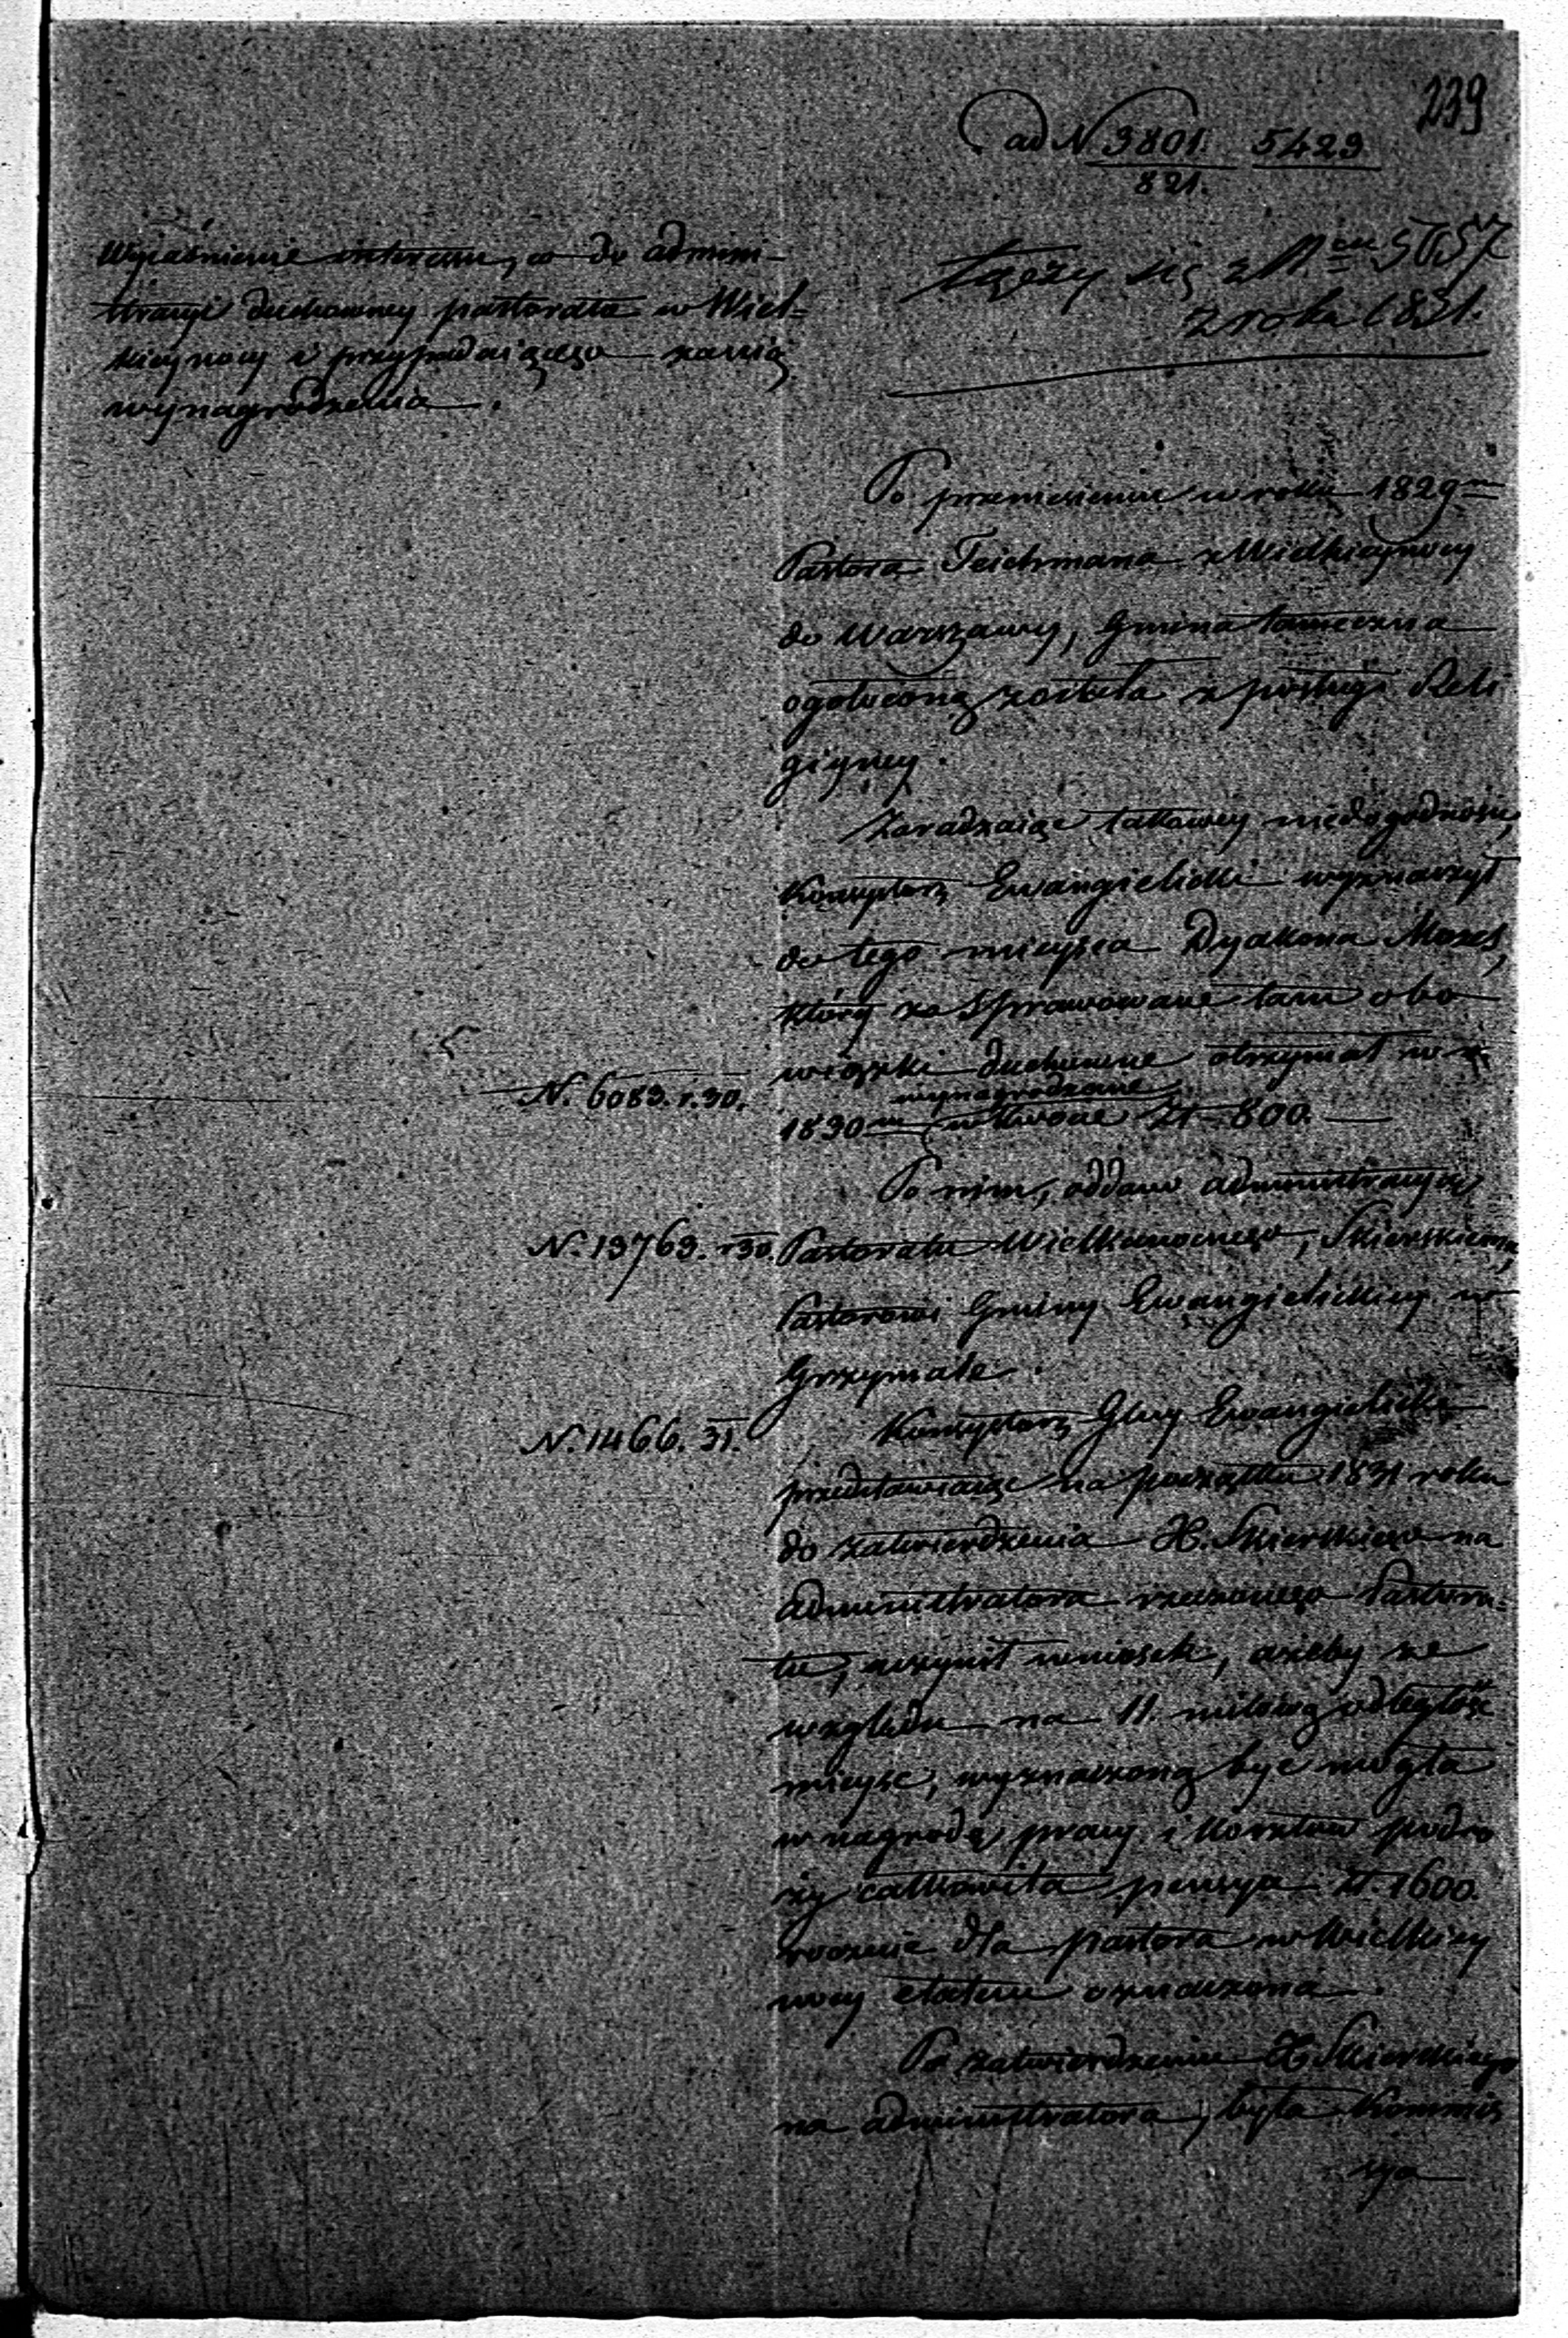 239
ad N 3801. 5429
821.
Wyiaśnienie interessu, co do admini-
stracyi duchowney pastoratu w Wiel-
kieynocy i przypadaiącego za nią
wynagrodzenia.
łączy się z Nrem 5657
z roku 1831.
Po przeniesieniu w roku 1829m
Pastora Teichmana z Wielkieynocy
do Warszawy, Gmina tameczna
ogołoconą została z posługi Reli
giyney.
Zaradzaiąc takowey niedogodności,
Konsystorz Ewangielicki wyznaczył
do tego mieysca Dyakona Moses,
który za sprawowane tam obo-
wiązki duchowne otrzymał w r.
N. 6083. r. 30.
wynagrodzenie
1830m w kwocie Zł 800.
Po nim, oddano administracyą
N. 13763. r 30.
Pastoratu Wielkanocnego, Skierskiemu,
Pastorowi Gminy Ewangielickiey w
Grzymale.
N. 1466. 31.
Konsystorz Glny Ewangielicki
przedstawiaiąc na początku 1831 roku
do zatwierdzenia X. Skierskiego na
administratora rzeczonego Pastora-
tu, uczynił wniosek, ażeby ze
względu na 11. milową odległość
mieysc, wyznaczoną być mogła
w nagrodę pracy i kosztów podró
ży całkowita pensya zł. 1600.
rocznie dla pastora w Wielkiey
nocy etatem oznaczona.
Po zatwierdzeniu X. Skierskiego
na administratora, była Kommis
sya